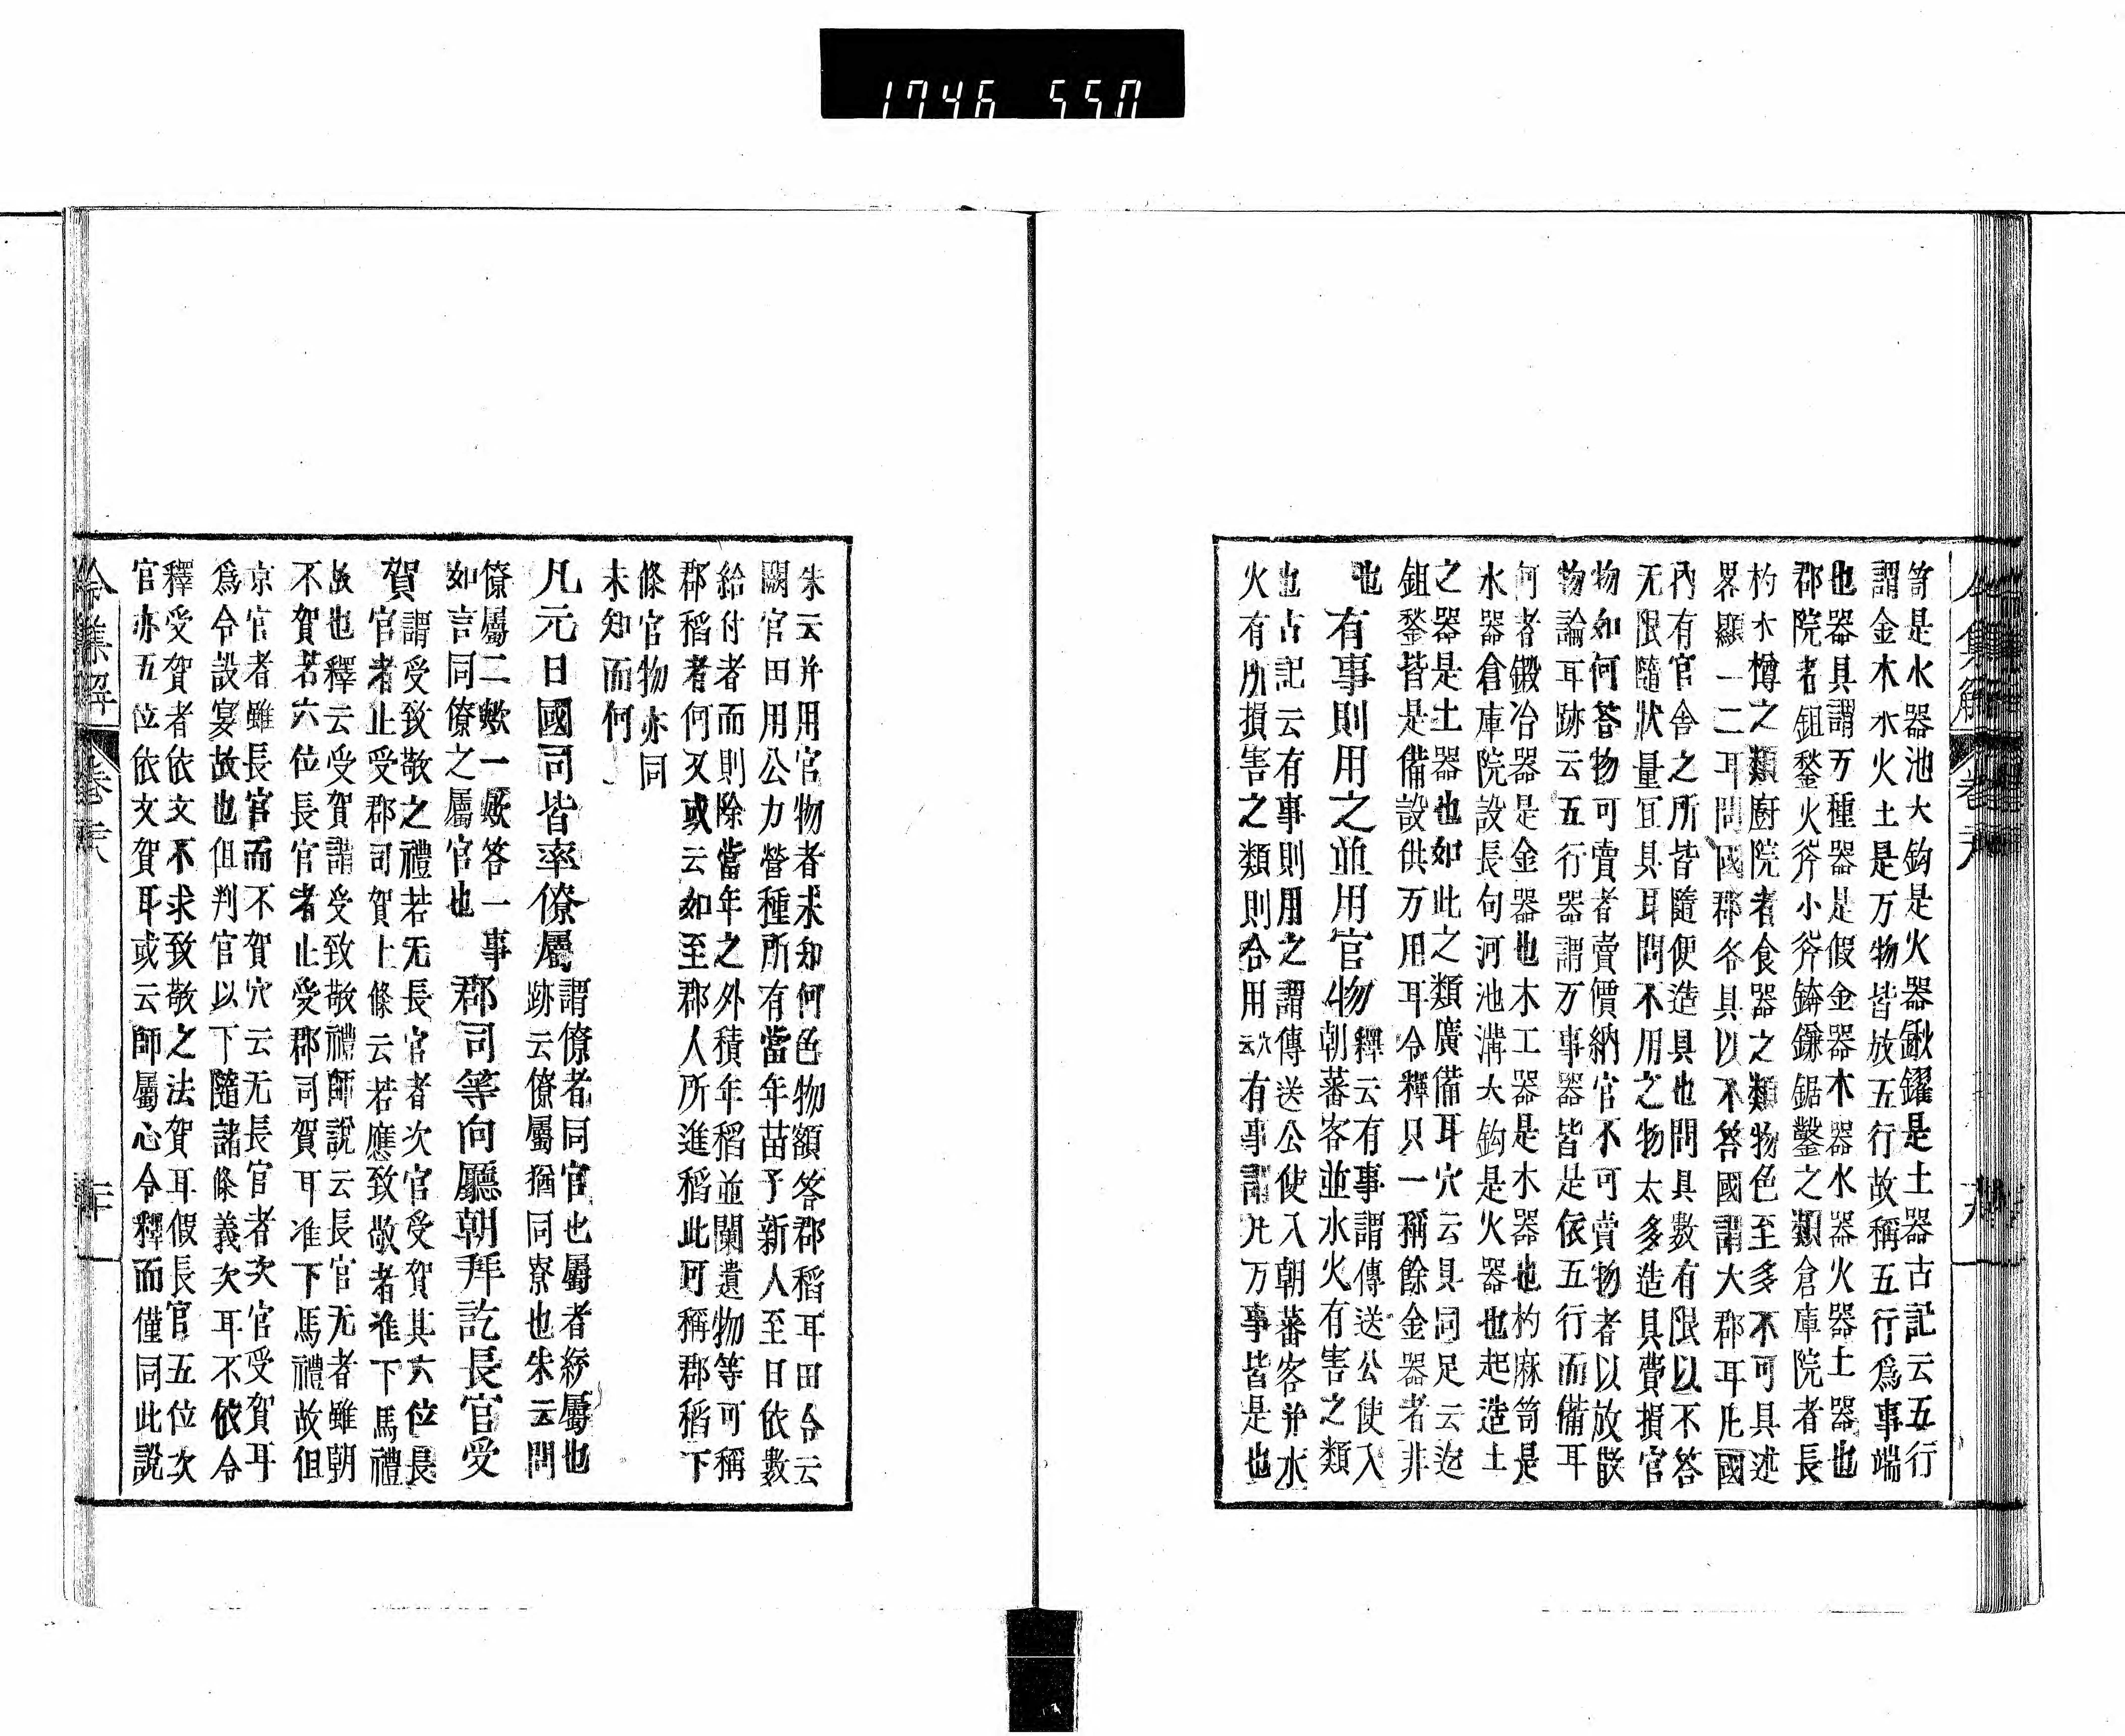 1746 550
笥是水器池大鈎是火器鍬钁是土器古記云五行
謂金木水火土是万物皆放五行故稱五行爲事端
也器具謂万種器是假金器木器水器火器土器也
郡院者鉏鍫火斧小斧錛鎌鋸鑿之類倉庫院者長
杓水樽之類廚院者食器之類物色至多不可具述
畧顯一二耳問國郡各具以不答國謂大郡耳凡國
內有官舍之所皆隨便造具也問具數有限以不答
无限隨狀量宜具耳問不用之物太多造具費損官
物如何荅物可賣者賣價納官不可賣物者以放散
物論耳跡云五行器謂万事器皆是依五行而備耳
何者鍛冶器是金器也木工器是木器也杓麻笥是
水器倉庫院設長句河池溝大鈎是火器也起造土
之器是土器也如此之類廣備耳穴云具同足云迩
鉏鍫皆是備設供万用耳令釋只一稱餘金器者非
也　有事則用之並用官物
釋云有事謂傳送公使入
朝蕃客並水火有害之類
也古記云有事則用之謂傳送公使入朝蕃客并水
火有所損害之類則合用穴云有事謂凡万事皆是也
朱云并用官物者未知何色物額答郡稻耳田令云
闕官田用公力營種所有當年苗予新人至日依數
給付者而則除當年之外積年稻並闌遺物等可稱
郡稻者何又或云如至郡人所進稻此可稱郡稻下
條官物亦同
未知而何
凡元日國司皆率僚屬
謂僚者同官也屬者統屬也
跡云僚屬猶同寮也朱云問
僚屬二歟一歟答一事
如言同僚之屬官也
郡司等向廳朝拜訖長官受
賀
謂受致敬之禮若无長官者次官受賀其六位長
官者止受郡司賀上條云若應致敬者准下馬禮
故也釋云受賀謂受致敬禮師說云長官无者雖朝
不賀若六位長官者止受郡司賀耳准下馬禮故但
京官者雖長官而不賀穴云无長官者次官受賀耳
爲令設宴故也但判官以下隨諸條義次耳不依令
釋受賀者依文不求致敬之法賀耳假長官五位次
官亦五位依文賀耳或云師屬心令釋而僅同此說
令集解　卷二八　二十